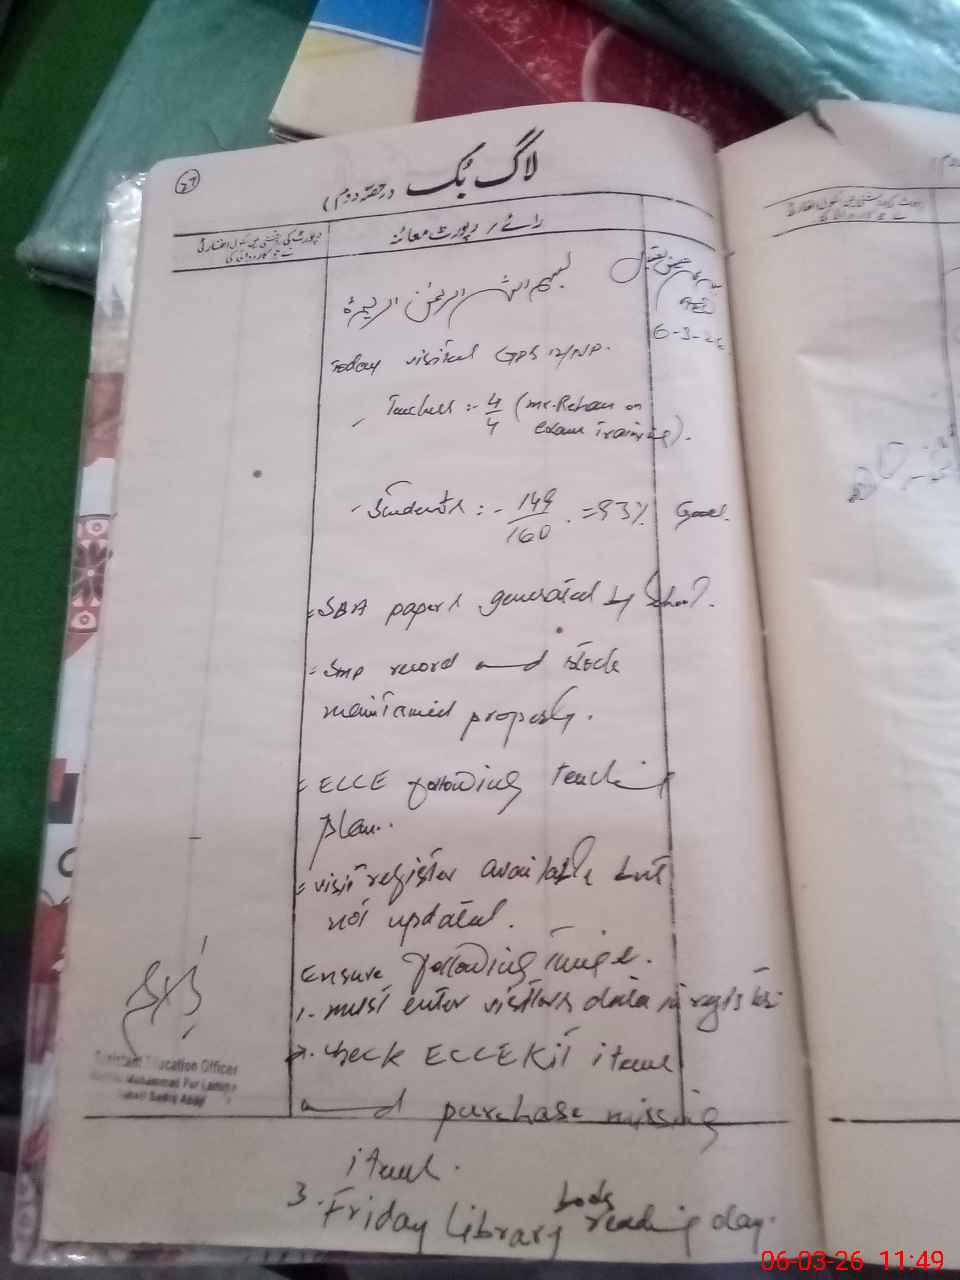 27
لاگ بک (حصہ دوم)
رائے / رپورٹ معائنہ
رپورٹ کی روشنی میں سکول اتھارٹی
نے جو کارروائی کی
بسم اللہ الرحمٰن الرحیم
6-3-26
Today visited GPS 12/NP.
Teachers :- 4/4 (Mr. Rehan on
Exam Training).
Students :- 149/160 = 93% Good.
= SBA papers generated by School.
= SMP record and stock
maintained properly.
= ECCE following teaching
plan.
= visit register available but
not updated.
Ensure following things.
1. must enter visitors data in register
2. check ECCE Kit items
and purchase missing
items.
3. Friday Library books reading day.
Assistant Education Officer
Muhammad Pur Lamma
06-03-26 11:49